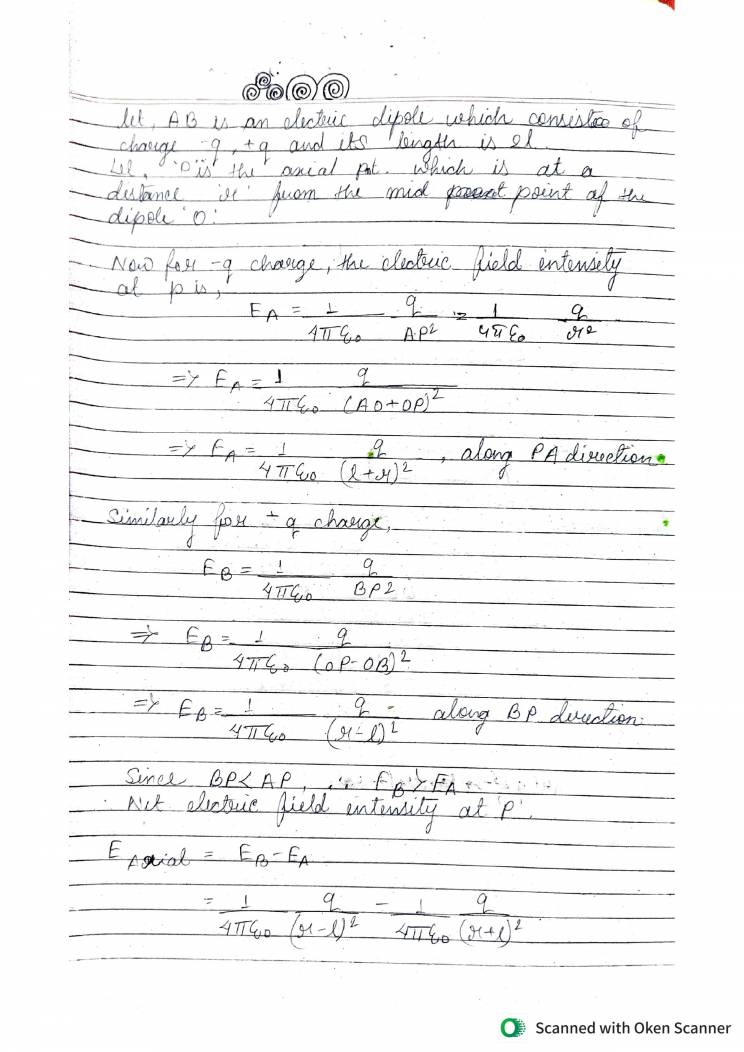 Let, AB is an electric dipole which consists of
charge -q, +q and its length is 2l.
Let, 'P' is the axial pnt. which is at a
distance 'r' from the mid point of the
dipole 'O'.
Now for -q charge, the electric field intensity
at p is,
E_A = 1/4πε₀ q/AP² = 1/4πε₀ q/r²
=> E_A = 1/4πε₀ q/(AO+OP)²
=> E_A = 1/4πε₀ q/(l+r)², along PA direction.
Similarly for +q charge,
E_B = 1/4πε₀ q/BP2
=> E_B = 1/4πε₀ q/(OP-OB)²
=> E_B = 1/4πε₀ q/(r-l)² along BP direction.
Since BP < AP, ∴ E_B > E_A
Net electric field intensity at 'P'.
E Axial = E_B - E_A
= 1/4πε₀ q/(r-l)² - 1/4πε₀ q/(r+l)²
Scanned with Oken Scanner